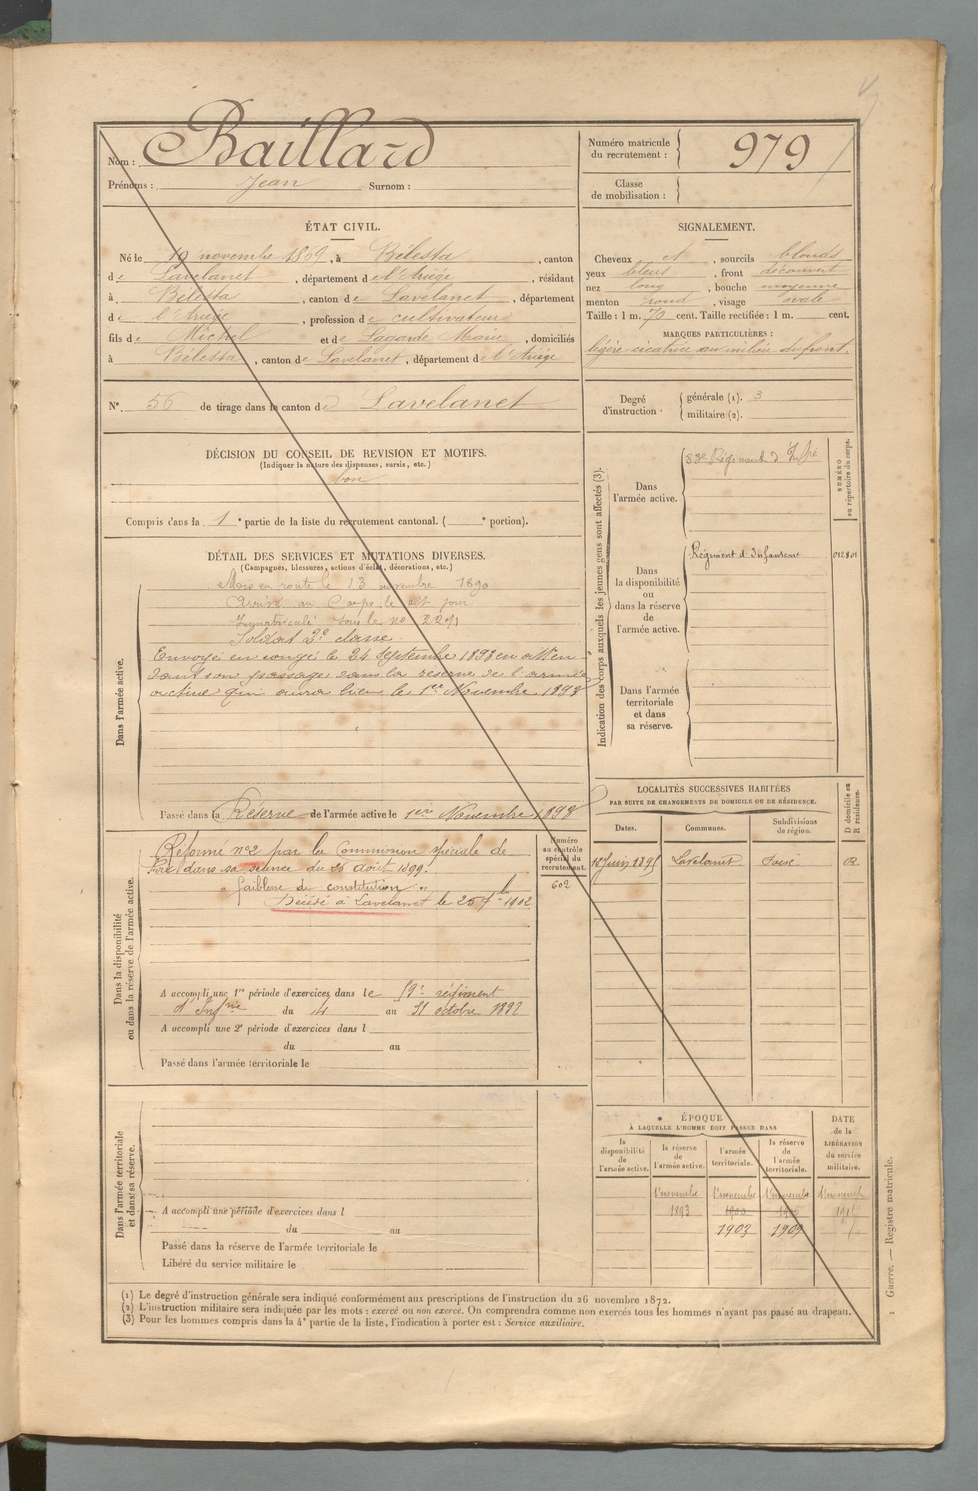 Nom : Baillard
Prénoms : Jean Surnom :
Numéro matricule du recrutement : 979
Classe de mobilisation :
ÉTAT CIVIL.
Né le 19 novembre 1869, à Bélesta, canton
de Lavelanet, département de l'Ariège, résidant
à Bélesta, canton de Lavelanet, département
de l'Ariège, profession de cultivateur
fils de Michel et de Lagarde Marie, domiciliés
à Bélesta, canton de Lavelanet, département de l'Ariège
SIGNALEMENT.
Cheveux et, sourcils blonds
yeux bleus, front découvert
nez long, bouche moyenne
menton rond, visage ovale
Taille : 1 m. 70 cent. Taille rectifiée : 1 m. cent.
MARQUES PARTICULIÈRES :
légère cicatrice au milieu du front.
N° 56 de tirage dans le canton de Lavelanet
Degré d'instruction.
générale (1). 3
militaire (2).
DÉCISION DU CONSEIL DE REVISION ET MOTIFS.
(Indiquer la nature des dispenses, sursis, etc.)
bon
Compris dans la 1e partie de la liste du recrutement cantonal. ( e portion).
DÉTAIL DES SERVICES ET MUTATIONS DIVERSES.
(Campagnes, blessures, actions d'éclat, décorations, etc.)
Dans l'armée active.
Mis en route le 13 novembre 1890
Arrivé au Corps le dit jour
Immatriculé sous le no 2271
Soldat 2e classe.
Envoyé en congé le 24 Septembre 1893 en atten-
dant son passage dans la réserve de l'armée
active qui aura lieu le 1er Novembre 1893
Passé dans la Réserve de l'armée active le 1er Novembre 1893
Indication des corps auxquels les jeunes gens sont affectés (3).
NUMÉRO au répertoire du corps.
Dans l'armée active.
83e Régiment d'Infrie
Dans la disponibilité ou dans la réserve de l'armée active.
Régiment d'Infanterie 012801
Dans l'armée territoriale et dans sa réserve.
LOCALITÉS SUCCESSIVES HABITÉES
PAR SUITE DE CHANGEMENTS DE DOMICILE OU DE RÉSIDENCE.
Dates. Communes. Subdivisions de région. D domicile ou R résidence.
Juin 1895 Lavelanet Foix R
Dans la disponibilité ou dans la réserve de l'armée active.
Numéro au contrôle spécial du recrutement.
602
Réformé no2 par la Commission spéciale de
Foix dans sa séance du 26 Août 1899.
"faiblesse de constitution"
Décédé à Lavelanet le 25 1902
A accompli une 1re période d'exercices dans le régiment
d'Infrie du 4 au 31 octobre
A accompli une 2e période d'exercices dans l
du au
Passé dans l'armée territoriale le
Dans l'armée territoriale et dans sa réserve.
A accompli une période d'exercices dans l
du au
Passé dans la réserve de l'armée territoriale le
Libéré du service militaire le
ÉPOQUE
À LAQUELLE L'HOMME DOIT PASSER DANS
la disponibilité de l'armée active.
la réserve de l'armée active.
l'armée territoriale.
la réserve de l'armée territoriale.
DATE de la LIBÉRATION du service militaire.
1er novembre 1er novembre 1er novembre 1er novembre
1893 1900
1903 1909
(1) Le degré d'instruction générale sera indiqué conformément aux prescriptions de l'instruction du 26 novembre 1872.
(2) L'instruction militaire sera indiquée par les mots : exercé ou non exercé. On comprendra comme non exercés tous les hommes n'ayant pas passé au drapeau.
(3) Pour les hommes compris dans la 4e partie de la liste, l'indication à porter est : Service auxiliaire.
1 Guerre. — Registre matricule.